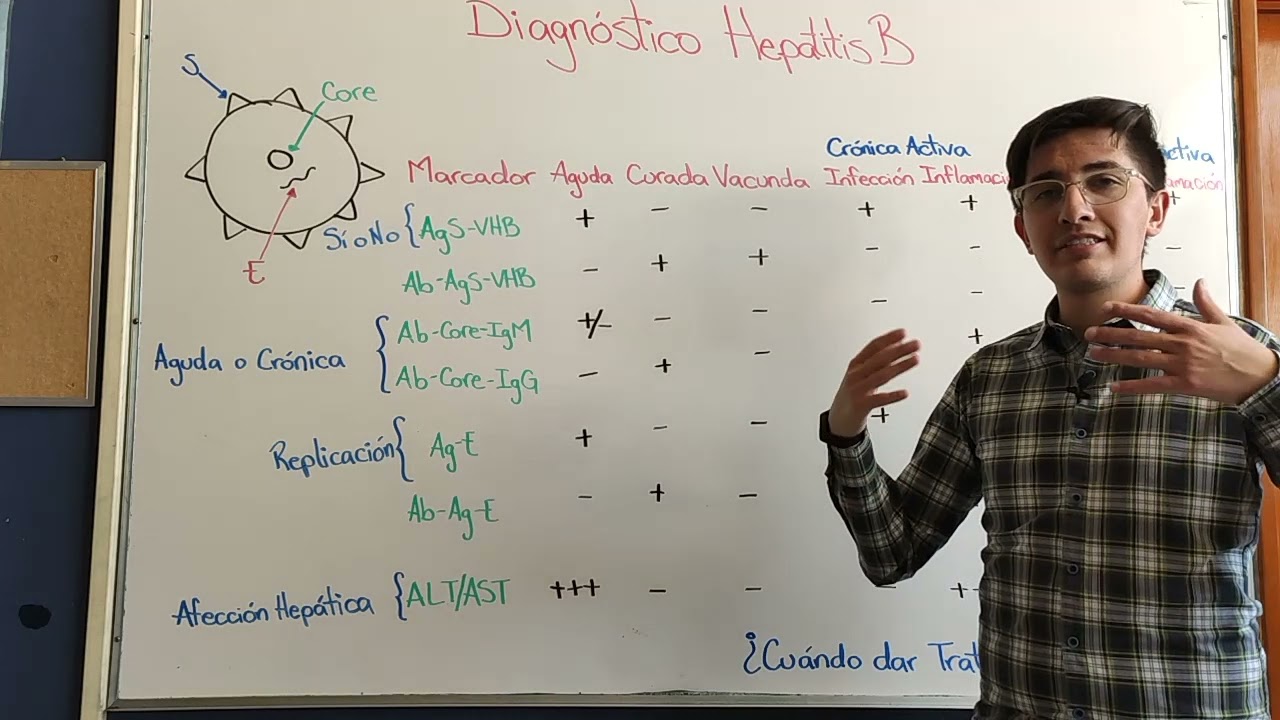 Diagnóstico Hepatitis B
S
Core
E
Crónica Activa
Marcador Aguda Curada Vacunda Infección
Sí o No { AgS-VHB + - - + + +
Ab-AgS-VHB - + + - - -
Aguda o Crónica { Ab-Core-IgM +/- - - - - -
Ab-Core-IgG - + - +
Replicación { Ag-E + - - +
Ab-Ag-E - + -
Afección Hepática { ALT/AST +++ - - - +
¿Cuándo dar